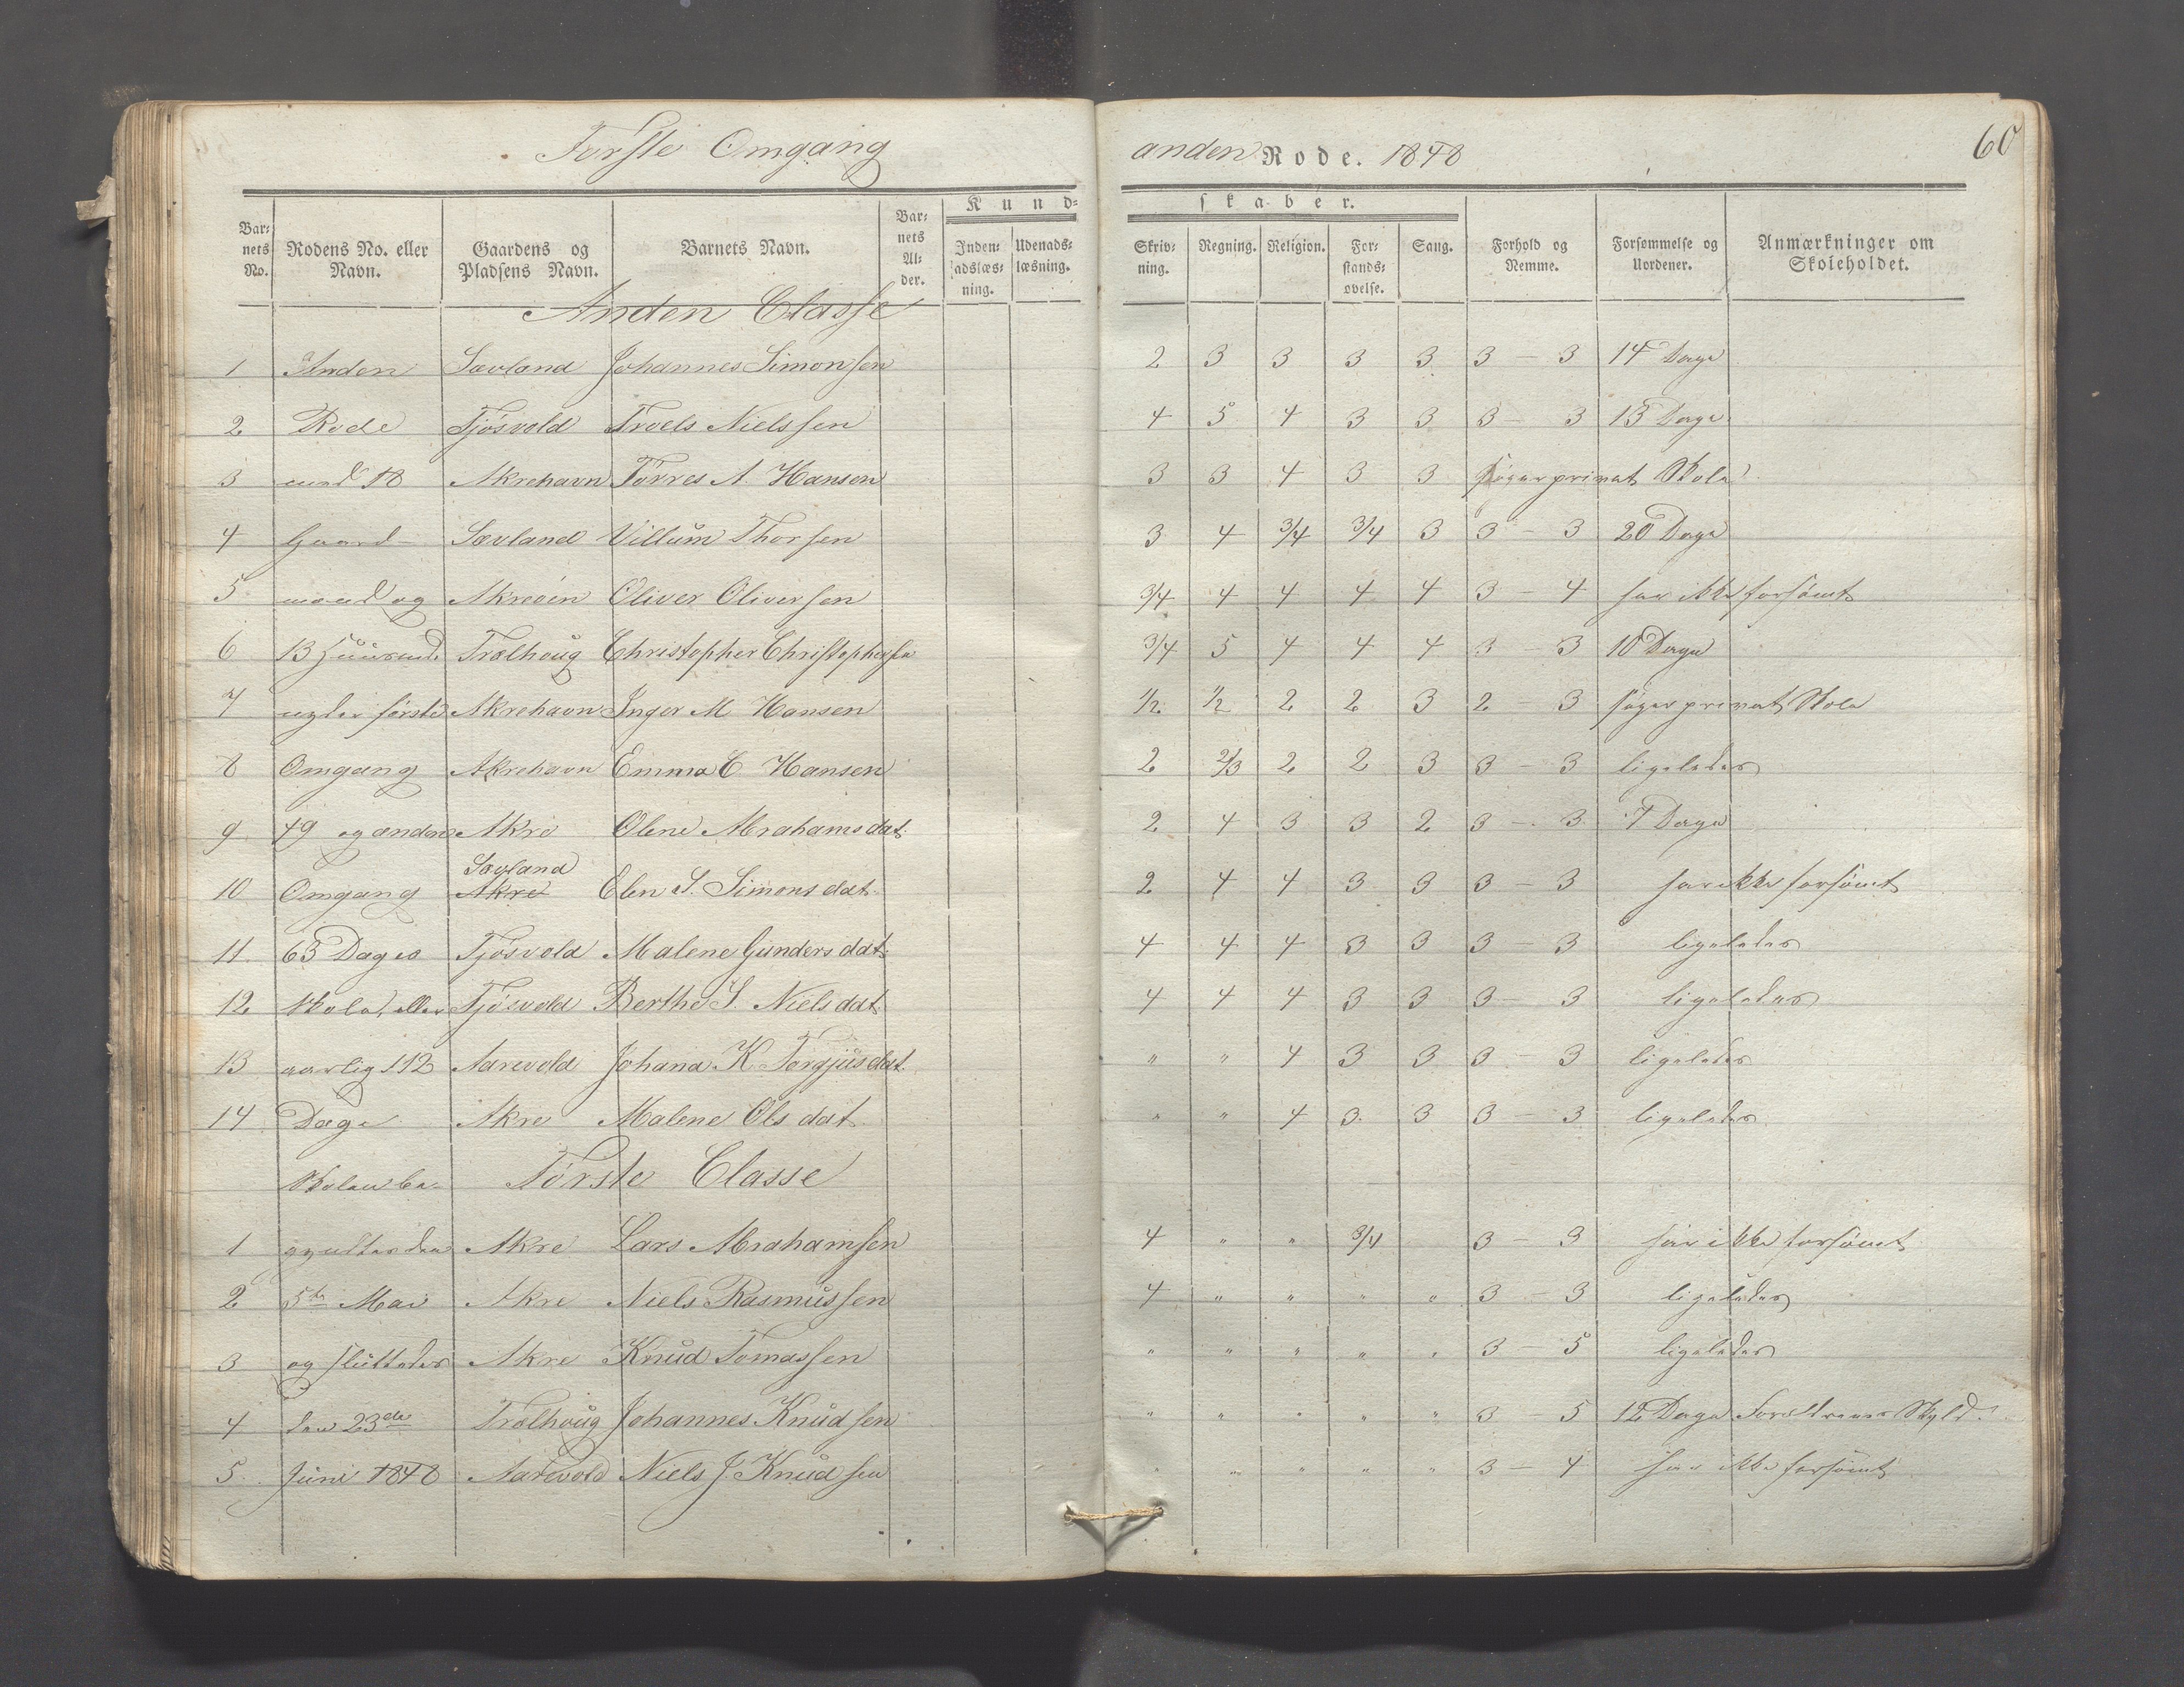 Første Omgang
anden Rode. 1848
60
Barnets No.
Rodens No. eller Navn.
Gaardens og Pladsens Navn.
Barnets Navn.
Barnets Alder.
Kundskaber.
Indenadslæsning.
Udenadslæsning.
Skrivning.
Regning.
Religion.
Forstandsøvelse.
Sang.
Forhold og Nemme.
Forsømmelse og Uordener.
Anmærkninger om Skoleholdet.
Anden Classe
1 Anden Sævland Johannes Simonsen 2 3 3 3 3 3 - 3 14 Dage
2 Rode Tjösvold Troels Nielssen 4 5 4 3 3 3 - 3 13 Dage
3 med 18 Akrehavn Törres A. Hansen 3 3 4 3 3 söger privat Skole
4 Gaard- Sævland Villum Thorsen 3 4 3/4 3/4 3 3 - 3 20 Dage
5 mænd og Akreöen Oliver Oliversen 3/4 4 4 4 4 3 - 4 har ikke forsömt
6 13 Huusmd Trælhoug Christopher Christophersen 3/4 5 4 4 4 3 - 3 10 Dage
7 første Akrehavn Inger M Hansen 1/2 1/2 2 2 3 2 - 3 söger privat Skole
8 Omgang Akrehavn Emma C Hansen 2 2/3 2 2 3 3 - 3 ligeledes
9 49 og anden Akre Olene Abrahamsdat. 2 4 3 3 2 3 - 3 7 Dage
10 Omgang Sævland Akre Elen S. Simonsdat. 2 4 4 3 3 3 - 3 har ikke forsömt
11 63 Dages Tjösvold Malene Gundersdat. 4 4 4 3 3 3 - 3 ligeledes
12 Skole, eller Tjösvold Berthe S. Nielsdat. 4 4 4 3 3 3 - 3 ligeledes
13 aarlig 112 Aarevold Johana K Torgjusdat. " " 4 3 3 3 - 3 ligeledes
14 Dage Akre Malene Olsdat. " " 4 3 3 3 - 3 ligeledes
Skolen be- Første Classe
1 gyndtes den Akre Lars Abrahamsen 4 " " 3/4 3 - 3 har ikke forsömt
2 5te Mai Akre Niels Rasmussen 4 " " " " 3 - 3 ligeledes
3 og sluttedes Akre Knud Tomassen " " " " " 3 - 5 ligeledes
4 den 23de Trælhoug Johannes Knudsen " " " " " 3 5 12 Dage Forældrenes Skyld.
5 Juni 1848 Aarevold Niels J Knudsen " " " " " 3 - 4 har ikke forsömt